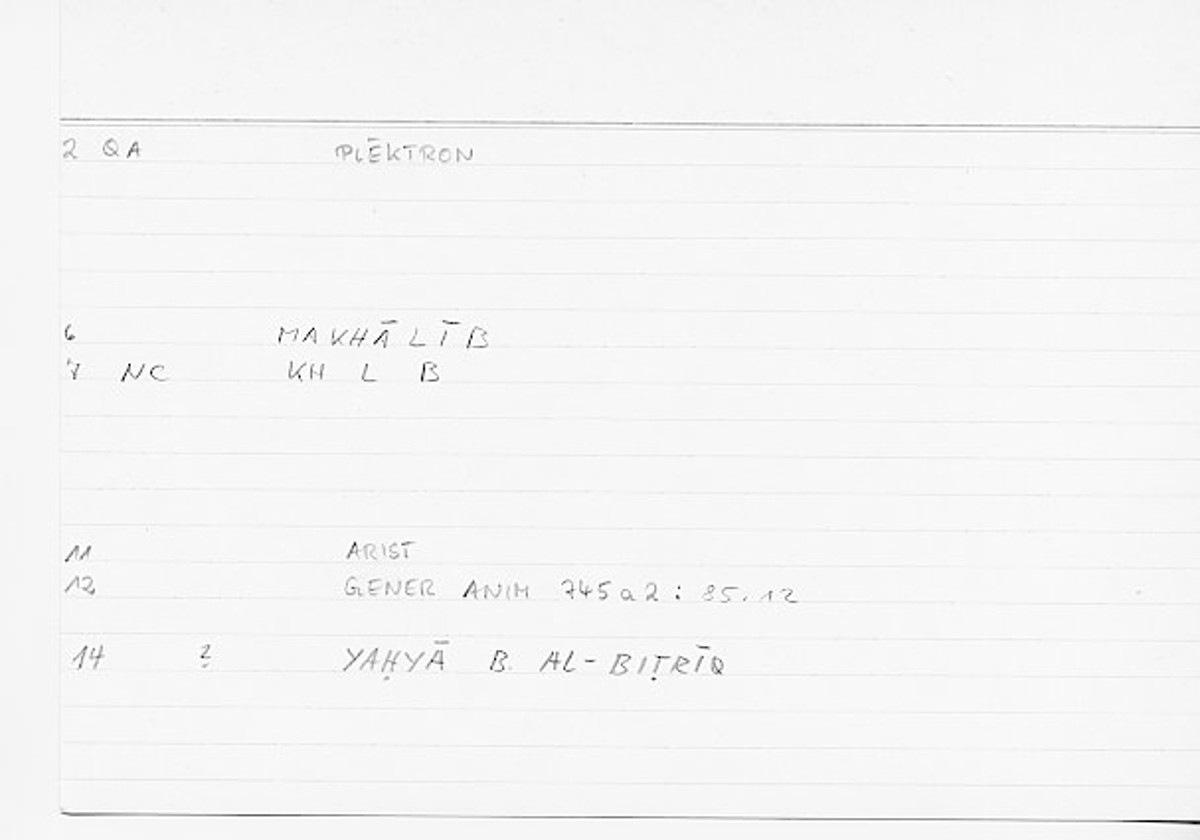 2 QA PLĒKTRON
6 MAKHĀLĪB
7 NC KH L B
11 ARIST
12 GENER ANIM 745a2: 85.12
14 ? YAḤYĀ B. AL-BIṬRĪQ